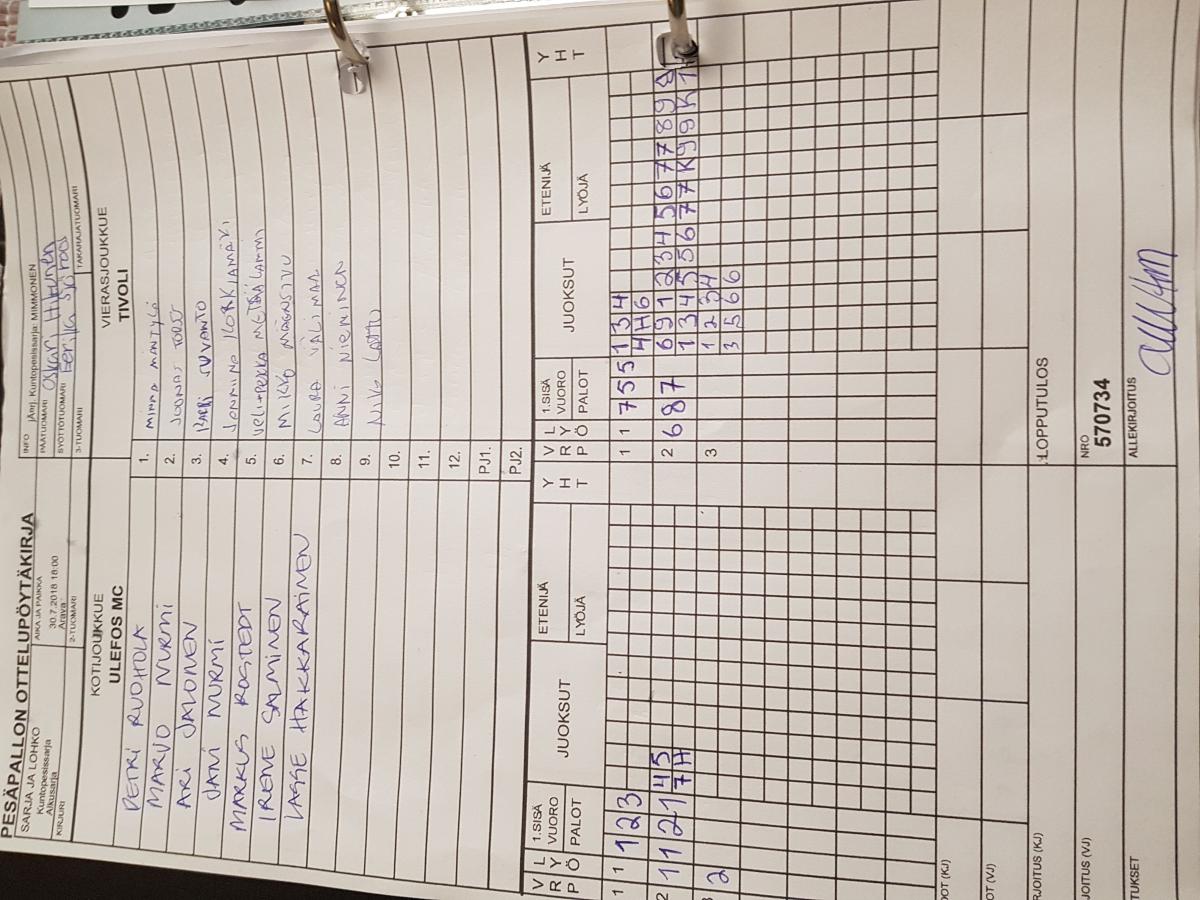 PESÄPALLON OTTELUPÖYTÄKIRJA
SARJA JA LOHKO
Kuntopesissarja
Alkusarja
KIRJURI
AIKA JA PAIKKA
30.7.2018 18:00
Arava
2-TUOMARI
INFO jÄmj. Kuntopesissarja: MIMMONEN
PÄÄTUOMARI Oskari
SYÖTTÖTUOMARI Eerika
3-TUOMARI
TAKARAJATUOMARI
KOTIJOUKKUE
ULEFOS MC
VIERASJOUKKUE
TIVOLI
PETRI RUOHOLA 1. MINNA MÄNTYLÄ
MARJO NURMI 2. JOONAS
ARI JALONEN 3.
JANI NURMI 4.
MARKUS ROSTEDT 5. VELI-PEKKA METSÄLAMMI
IRENE SALMINEN 6.
LASSE HAKKARAINEN 7. LAURA VÄLIMAA
8. ANNI NIEMINEN
9.
10.
11.
12.
PJ1.
PJ2.
V R P L Y Ö 1.SISÄ VUORO PALOT JUOKSUT ETENIJÄ LYÖJÄ Y H T
V R P L Y Ö 1.SISÄ VUORO PALOT JUOKSUT ETENIJÄ LYÖJÄ Y H T
1 1 1 2 3
1 1 7 5 5 1 3 4
4 4 6
2 1 1 2 1 4 5
7 H
2 6 8 7 6 9 1 2 3 4 5 6 7 7 8 9 8
1 3 4 5 5 6 7 7 K 9 9 K 1
2
3 1 2 3 4
3 5 6 6
LOPPUTULOS
NRO
570734
ALLEKIRJOITUS